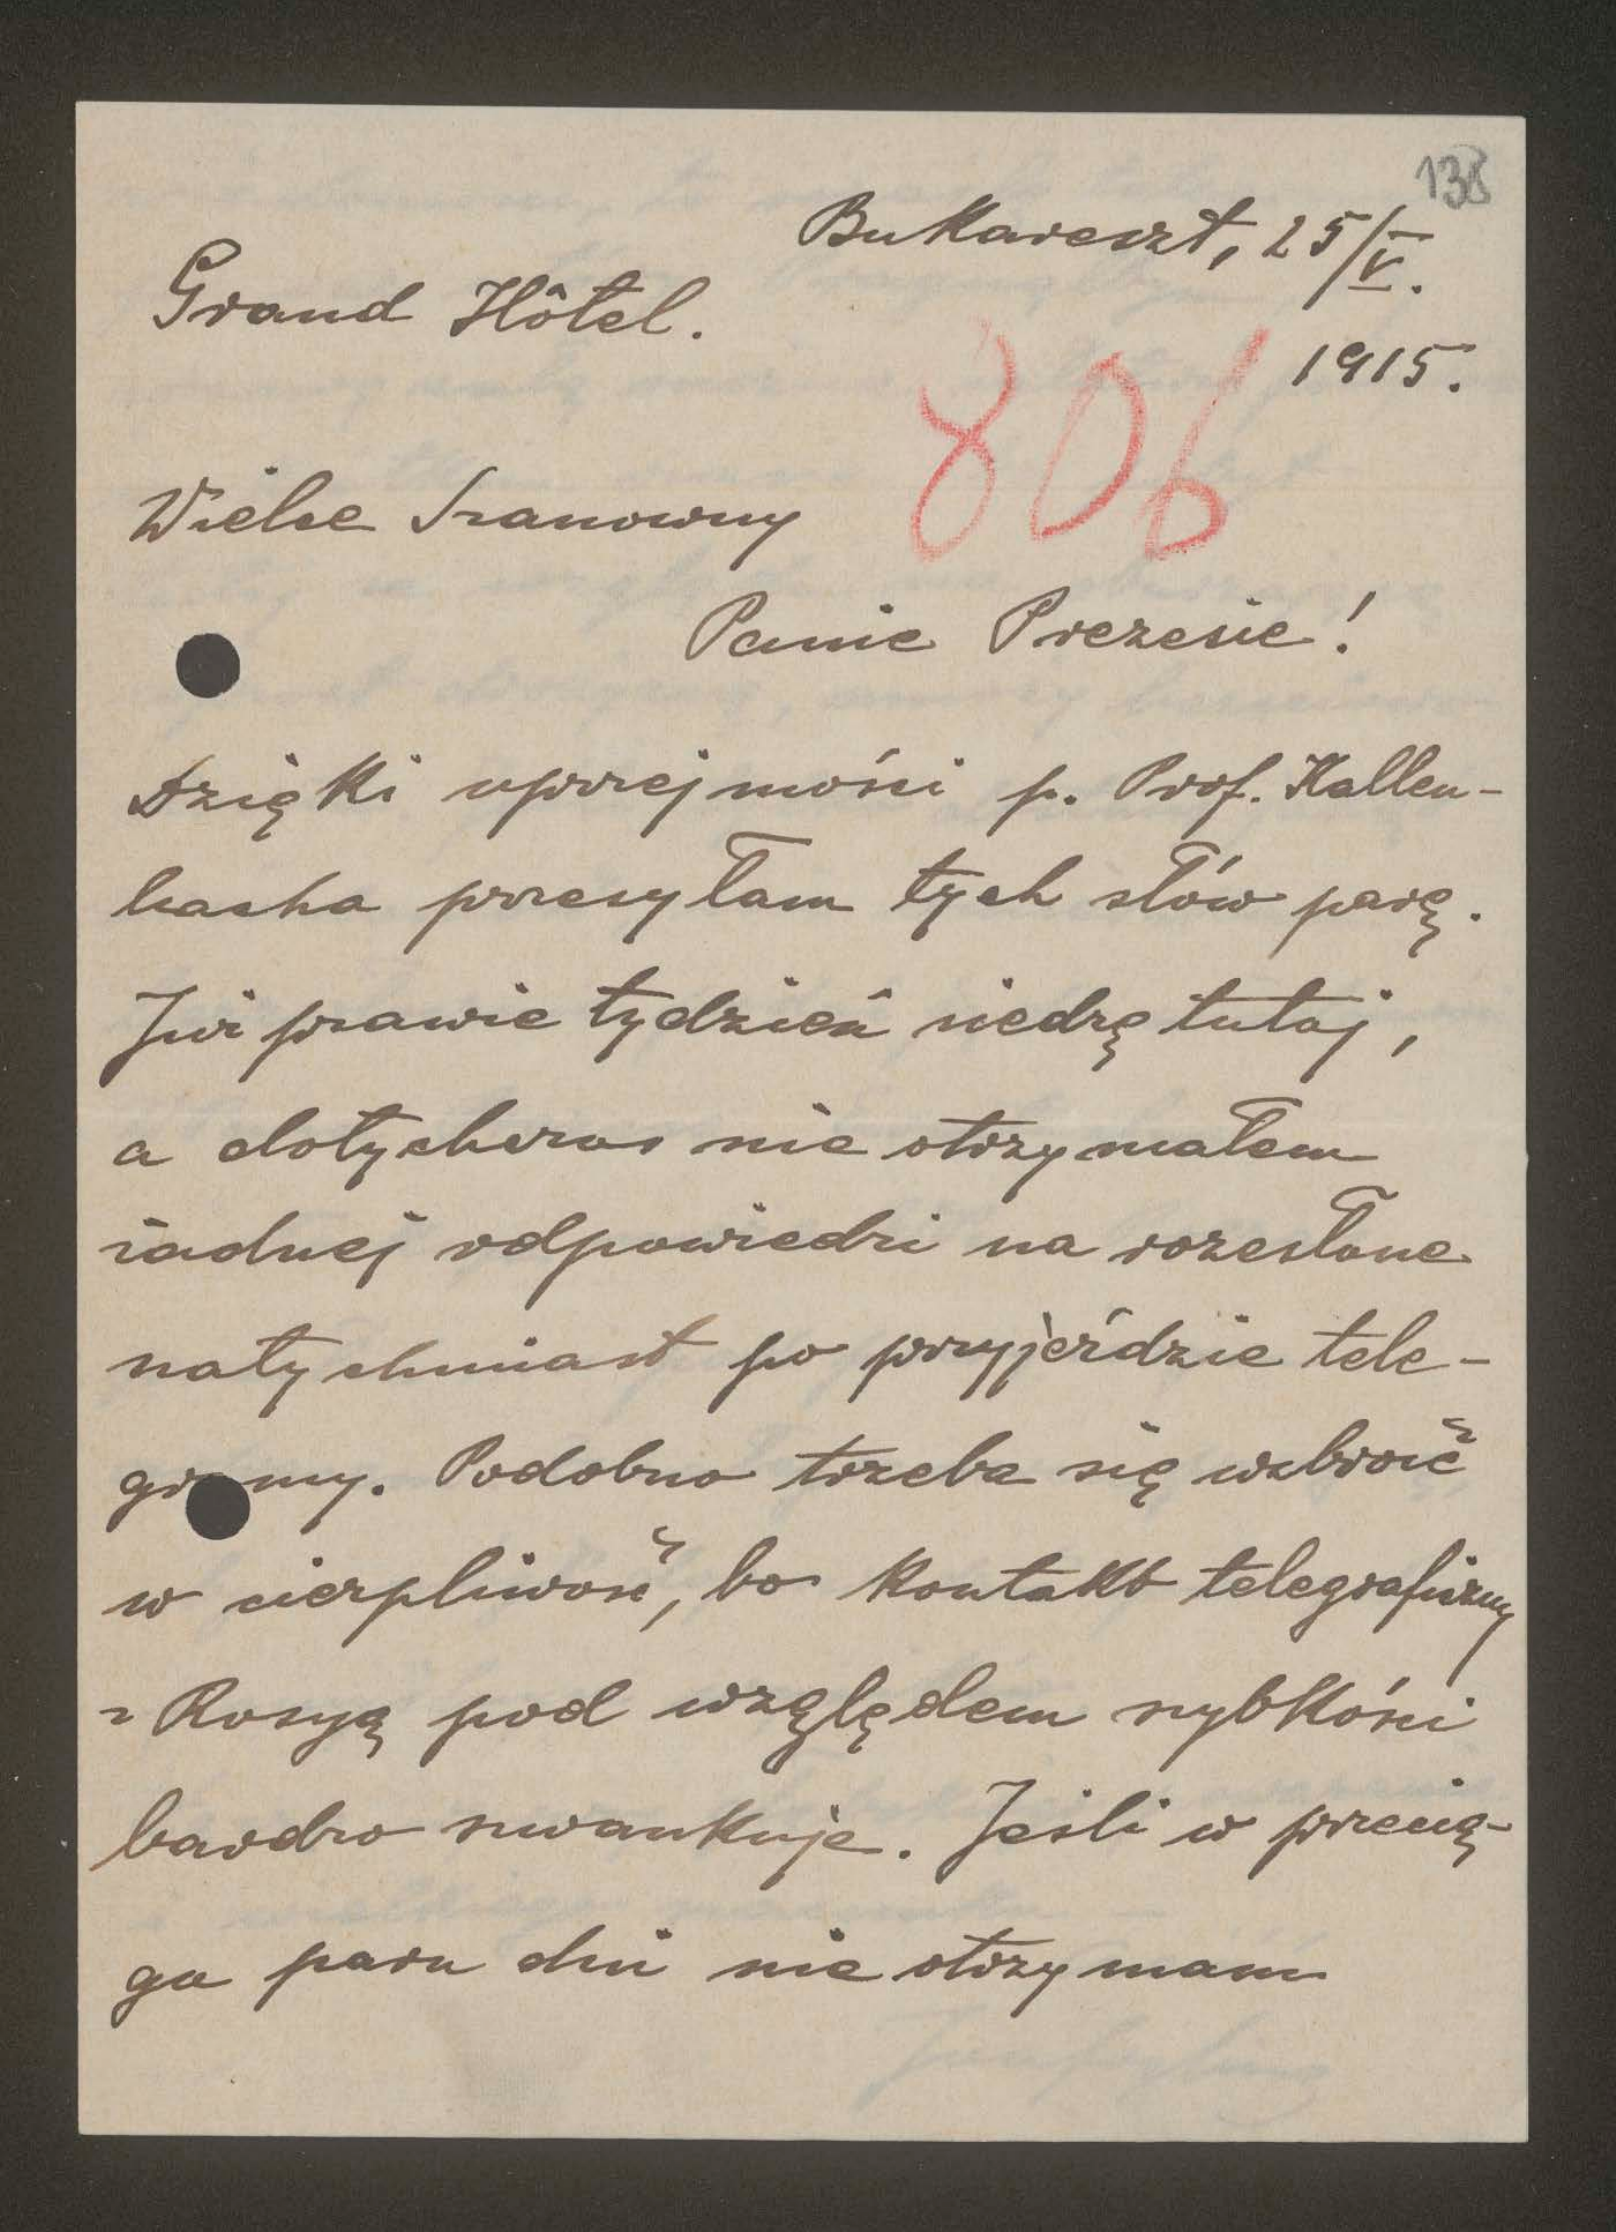 138
Bukareszt, 25/V.
Grand Hôtel.
1915.
806
Wielce Szanowny
Panie Prezesie!
Dzięki uprzejmości p. Prof. Kallen-
bacha przesyłam tych słów parę.
Już prawie tydzień siedzę tutaj,
a dotychczas nie otrzymałem
żadnej odpowiedzi na rozesłane
natychmiast po przyjeździe tele-
gramy. Podobno trzeba się uzbroić
w cierpliwość, bo kontakt telegraficzny
z Rosyą pod względem szybkości
bardzo szwankuje. Jeśli w przecią-
gu paru dni nie otrzymam